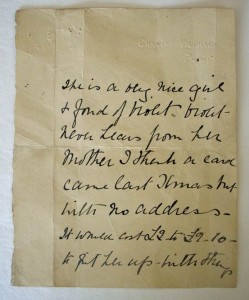 She is a very nice girl
& fond of Violet. Violet
never hears from her
Mother I think a card
came last Xmas but
with no address -
It would cost £2 to £2-10-
to put her up - with things